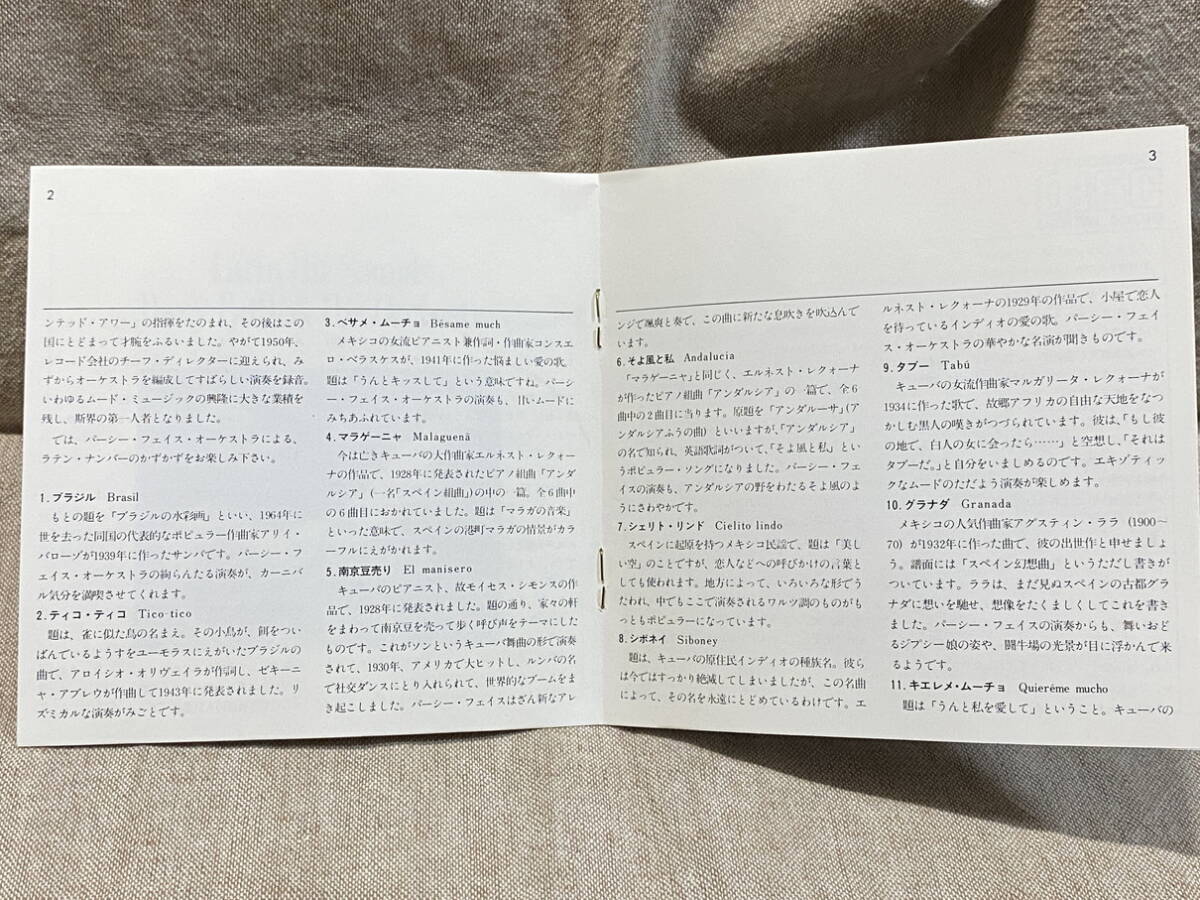 2
ンテッド・アワー」の指揮をたのまれ、その後はこの
国にとどまって才腕をふるいました。やがて1950年、
レコード会社のチーフ・ディレクターに迎えられ、み
ずからオーケストラを編成してすばらしい演奏を録音。
いわゆるムード・ミュージックの興隆に大きな業績を
残し、斯界の第一人者となりました。
では、パーシー・フェイス・オーケストラによる、
ラテン・ナンバーのかずかずをお楽しみ下さい。
1.ブラジル Brasil
もとの題を「ブラジルの水彩画」といい、1964年に
世を去った同国の代表的なポピュラー作曲家アリイ・
バローゾが1939年に作ったサンバです。パーシー・フ
ェイス・オーケストラの絢らんたる演奏が、カーニバ
ル気分を満喫させてくれます。
2.ティコ・ティコ Tico-tico
題は、雀に似た鳥の名まえ。その小鳥が、餌をつい
ばんでいるようすをユーモラスにえがいたブラジルの
曲で、アロイシオ・オリヴェイラが作詞し、ゼキーニ
ャ・アブレウが作曲して1943年に発表されました。リ
ズミカルな演奏がみごとです。
3.ベサメ・ムーチョ Bésame much
メキシコの女流ピアニスト兼作詞・作曲家コンスエ
ロ・ベラスケスが、1941年に作った悩ましい愛の歌。
題は「うんとキッスして」という意味ですね。パーシ
ー・フェイス・オーケストラの演奏も、甘いムードに
みちあふれています。
4.マラゲーニャ Malaguenã
今は亡きキューバの大作曲家エルネスト・レクォー
ナの作品で、1928年に発表されたピアノ組曲「アンダ
ルシア」(一名「スペイン組曲」)の中の一篇。全6曲中
の6曲目におかれていました。題は「マラガの音楽」
といった意味で、スペインの港町マラガの情景がカラ
ーフルにえがかれます。
5.南京豆売り El manisero
キューバのピアニスト、故モイセス・シモンスの作
品で、1928年に発表されました。題の通り、家々の軒
をまわって南京豆を売って歩く呼び声をテーマにした
ものです。これがソンというキューバ舞曲の形で演奏
されて、1930年、アメリカで大ヒットし、ルンバの名
で社交ダンスにとり入れられて、世界的なブームをま
き起こしました。パーシー・フェイスはざん新なアレ
3
ンジで颯爽と奏で、この曲に新たな息吹きを吹込んで
います。
6.そよ風と私 Andalucia
「マラゲーニャ」と同じく、エルネスト・レクォーナ
が作ったピアノ組曲「アンダルシア」の一篇で、全6
曲中の2曲目に当ります。原題を「アンダルーサ」(ア
ンダルシアふうの曲)といいますが、「アンダルシア」
の名で知られ、英語歌詞がついて、「そよ風と私」とい
うポピュラー・ソングになりました。パーシー・フェ
イスの演奏も、アンダルシアの野をわたるそよ風のよ
うにさわやかです。
7.シェリト・リンド Cielito lindo
スペインに起原を持つメキシコ民謡で、題は「美し
い空」のことですが、恋人などへの呼びかけの言葉と
しても使われます。地方によって、いろいろな形でう
たわれ、中でもここで演奏されるワルツ調のものがも
っともポピュラーになっています。
8.シボネイ Siboney
題は、キューバの原住民インディオの種族名。彼ら
は今ではすっかり絶滅してしまいましたが、この名曲
によって、その名を永遠にとどめているわけです。エ
ルネスト・レクォーナの1929年の作品で、小屋で恋人
を待っているインディオの愛の歌。パーシー・フェイ
ス・オーケストラの華やかな名演が聞きものです。
9.タブー Tabú
キューバの女流作曲家マルガリータ・レクォーナが
1934に作った歌で、故郷アフリカの自由な天地をなつ
かしむ黒人の嘆きがつづられています。彼は、「もし彼
の地で、白人の女に会ったら……」と空想し、「それは
タブーだ。」と自分をいましめるのです。エキゾティッ
クなムードのただよう演奏が楽しめます。
10.グラナダ Granada
メキシコの人気作曲家アグスティン・ララ(1900〜
70)が1932年に作った曲で、彼の出世作と申せましょ
う。譜面には「スペイン幻想曲」というただし書きが
ついています。ララは、まだ見ぬスペインの古都グラ
ナダに想いを馳せ、想像をたくましくしてこれを書き
ました。パーシー・フェイスの演奏からも、舞いおど
るジプシー娘の姿や、闘牛場の光景が目に浮かんで来
るようです。
11.キエレメ・ムーチョ Quieréme mucho
題は「うんと私を愛して」ということ。キューバの